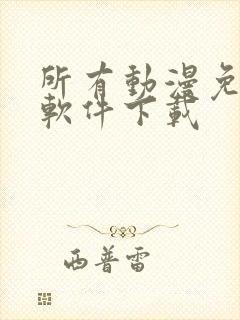 所有動漫免
軟件下載
西普雷